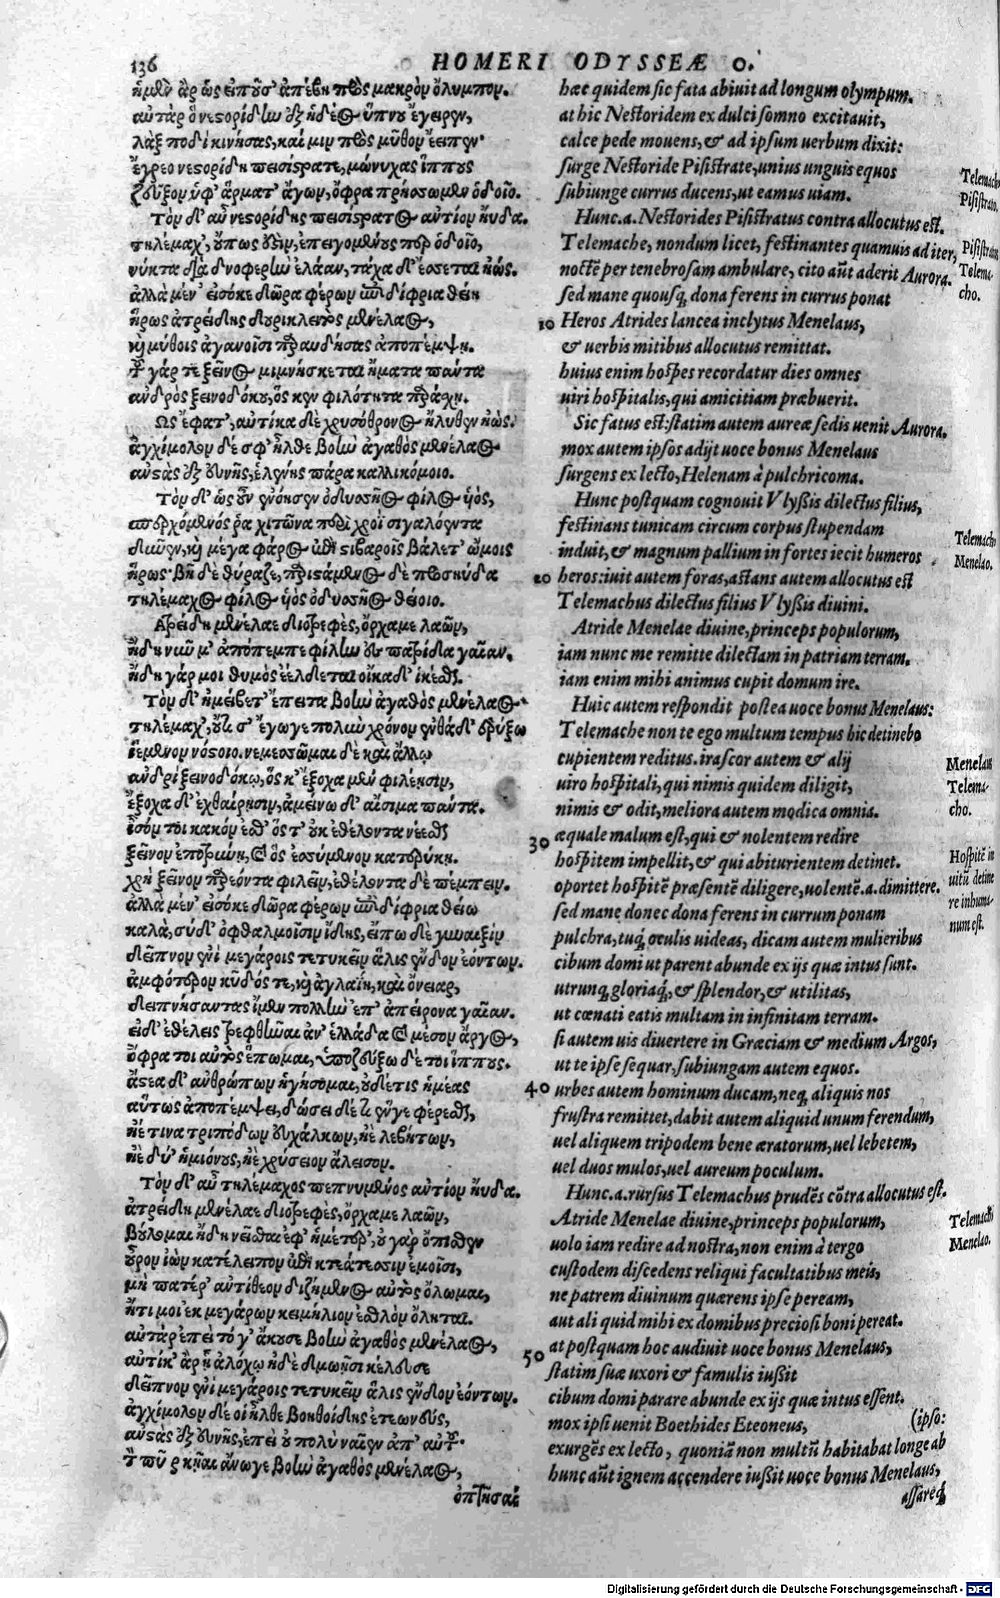 136
HOMERI ODYSSEÆ O.
ἡ μὲν ἂρ ὣς εἰποῦσ' ἀπέβη πρὸς μακρὸν ὄλυμπον.
αὐτὰρ ὁ νεστορίδην ἐξ ἡδέος ὕπνου ἔγειρεν,
λὰξ ποδὶ κινήσας, καί μιν πρὸς μῦθον ἔειπεν·
ἔγρεο νεστορίδη πεισίστρατε, μώνυχας ἵππους
ζεῦξον ὑφ' ἅρματ' ἄγων, ὄφρα πρήσσωμεν ὁδοῖο.
Τὸν δ' αὖ νεστορίδης πεισίστρατος αὐτίον ηὔδα.
τηλέμαχ', οὔπως ἔστιν, ἐπειγομένους περ ὁδοῖο,
νύκτα διὰ δνοφερὴν ἐλάαν, τάχα δ' ἔσσεται ἠώς.
ἀλλὰ μέν' εἰσόκε δῶρα φέρων ἐπὶ δίφρια θείη
ἥρως ἀτρείδης δουρικλειτὸς μενέλαος,
καὶ μύθοις ἀγανοῖσι παραυδήσας ἀποπέμψῃ.
τοῦ γάρ τε ξεῖνος μιμνήσκεται ἤματα πάντα
ἀνδρὸς ξεινοδόκου, ὅς κεν φιλότητα παράσχῃ.
Ὣς ἔφατ', αὐτίκα δὲ χρυσόθρονος ἤλυθεν ἠώς.
ἀγχίμολον δέ σφ' ἦλθε βοὴν ἀγαθὸς μενέλαος
ἀνστὰς ἐξ εὐνῆς, ἑλένης πάρα καλλικόμοιο.
Τὸν δ' ὡς οὖν ἐνόησεν ὀδυσσῆος φίλος υἱὸς,
σπερχόμενός ῥα χιτῶνα περὶ χροῒ σιγαλόεντα
δῦνεν, καὶ μέγα φᾶρος ἐπὶ στιβαροῖς βάλετ' ὤμοις
ἥρως· βῆ δὲ θύραζε, παριστάμενος δὲ προσηύδα
τηλέμαχος φίλος υἱὸς ὀδυσσῆος θείοιο.
Ἀτρείδη μενέλαε διοτρεφὲς, ὄρχαμε λαῶν,
ἤδη νῦν μ' ἀπόπεμπε φίλην ἐς πατρίδα γαῖαν.
ἤδη γάρ μοι θυμὸς ἐέλδεται οἴκαδ' ἱκέσθαι.
Τὸν δ' ἠμείβετ' ἔπειτα βοὴν ἀγαθὸς μενέλαος·
τηλέμαχ', οὔτι σ' ἔγωγε πολὺν χρόνον ἐνθάδ' ἐρύξω
ἱέμενον νόστοιο. νεμεσσῶμαι δὲ καὶ ἄλλῳ
ἀνδρὶ ξεινοδόκῳ, ὅς κ' ἔξοχα μὲν φιλέησιν,
ἔξοχα δ' ἐχθαίρησιν, ἀμείνω δ' αἴσιμα πάντα.
ἶσόν τοι κακόν ἐσθ' ὅς τ' οὐκ ἐθέλοντα νέεσθαι
ξεῖνον ἐποτρύνῃ, καὶ ὃς ἐσσύμενον κατερύκῃ.
χρὴ ξεῖνον παρεόντα φιλεῖν, ἐθέλοντα δὲ πέμπειν.
ἀλλὰ μέν' εἰσόκε δῶρα φέρων ἐπὶ δίφρια θείω
καλά, σὺ δ' ὀφθαλμοῖσιν ἴδῃς, εἴπω δὲ γυναιξὶν
δεῖπνον ἐνὶ μεγάροις τετυκεῖν ἅλις ἔνδον ἐόντων.
ἀμφότερον κῦδός τε, καὶ ἀγλαΐη, καὶ ὄνειαρ,
δειπνήσαντας ἴμεν πολλὴν ἐπ' ἀπείρονα γαῖαν.
εἰ δ' ἐθέλεις τρεφθῆναι ἀν' ἑλλάδα καὶ μέσον ἄργος,
ὄφρα τοι αὐτὸς ἕπωμαι, ὑποζεύξω δέ τοι ἵππους.
ἄστεα δ' ἀνθρώπων ἡγήσομαι, οὐδέ τις ἡμέας
αὔτως ἀποπέμψει, δώσει δέ τι ἕν γε φέρεσθαι,
ἠέ τινα τριπόδων εὐχάλκων, ἠὲ λεβήτων,
ἠὲ δύ' ἡμιόνους, ἠὲ χρύσειον ἄλεισον.
Τὸν δ' αὖ τηλέμαχος πεπνυμένος αὐτίον ηὔδα.
ἀτρείδη μενέλαε διοτρεφὲς, ὄρχαμε λαῶν,
βούλομαι ἤδη νεῖσθαι ἐφ' ἡμέτερ', οὐ γὰρ ὄπισθεν
οὖρον ἰὼν κατέλειπον ἐπὶ κτεάτεσσιν ἐμοῖσι,
μὴ πατέρ' ἀντίθεον διζήμενος αὐτὸς ὄλωμαι,
ἤ τι μοι ἐκ μεγάρων κειμήλιον ἐσθλὸν ὄληται.
αὐτὰρ ἐπεὶ τό γ' ἄκουσε βοὴν ἀγαθὸς μενέλαος,
αὐτίκ' ἄρ' ᾗ ἀλόχῳ ἠδὲ δμωῇσι κέλευσε
δεῖπνον ἐνὶ μεγάροις τετυκεῖν ἅλις ἔνδον ἐόντων.
ἀγχίμολον δέ οἱ ἦλθε βοηθοΐδης ἐτεωνεύς,
ἀνστὰς ἐξ εὐνῆς, ἐπεὶ οὐ πολὺ ναῖεν ἀπ' αὐτοῦ·
τὸν πῦρ κῆαι ἄνωγε βοὴν ἀγαθὸς μενέλαος,
ὀπτῆσαί
hæc quidem sic fata abiuit ad longum olympum.
at hic Nestoridem ex dulci somno excitauit,
calce pede mouens, & ad ipsum uerbum dixit:
surge Nestoride Pisistrate, unius unguis equos
subiunge currus ducens, ut eamus uiam.
Hunc.a. Nestorides Pisistratus contra allocutus est.
Telemache, nondum licet, festinantes quamuis ad iter,
noctē per tenebrosam ambulare, cito aūt aderit Aurora.
sed mane quousq; dona ferens in currus ponat
10 Heros Atrides lancea inclytus Menelaus,
& uerbis mitibus allocutus remittat.
huius enim hospes recordatur dies omnes
uiri hospitalis, qui amicitiam præbuerit.
Sic fatus est: statim autem aureæ sedis uenit Aurora.
mox autem ipsos adijt uoce bonus Menelaus
surgens ex lecto, Helenam à pulchricoma.
Hunc postquam cognouit Vlyßis dilectus filius,
festinans tunicam circum corpus stupendam
induit, & magnum pallium in fortes iecit humeros
20 heros: iuit autem foras, astans autem allocutus est
Telemachus dilectus filius Vlyßis diuini.
Atride Menelae diuine, princeps populorum,
iam nunc me remitte dilectam in patriam terram.
iam enim mihi animus cupit domum ire.
Huic autem respondit postea uoce bonus Menelaus:
Telemache non te ego multum tempus hic detinebo
cupientem reditus. irascor autem & alij
uiro hospitali, qui nimis quidem diligit,
nimis & odit, meliora autem modica omnia.
30 æquale malum est, qui & nolentem redire
hospitem impellit, & qui abiturientem detinet.
oportet hospitē præsentē diligere, uolentē.a. dimittere.
sed mane donec dona ferens in currum ponam
pulchra, tuq; oculis uideas, dicam autem mulieribus
cibum domi ut parent abunde ex ijs quæ intus sunt.
utrunq; gloriaq́;, & splendor, & utilitas,
ut cœnati eatis multam in infinitam terram.
si autem uis diuertere in Græciam & medium Argos,
ut te ipse sequar, subiungam autem equos.
40 urbes autem hominum ducam, neq; aliquis nos
frustra remittet, dabit autem aliquid unum ferendum,
uel aliquem tripodem bene æratorum, uel lebetem,
uel duos mulos, uel aureum poculum.
Hunc.a. rursus Telemachus prudēs cōtra allocutus est.
Atride Menelae diuine, princeps populorum,
uolo iam redire ad nostra, non enim à tergo
custodem discedens reliqui facultatibus meis,
ne patrem diuinum quærens ipse peream,
aut aliquid mihi ex domibus preciosi boni pereat.
50 at postquam hoc audiuit uoce bonus Menelaus,
statim suæ uxori & famulis iußit
cibum domi parare abunde ex ijs quæ intus essent.
mox ipsi uenit Boethides Eteoneus,
(ipso:
exurgēs ex lecto, quoniā non multū habitabat longe ab
hunc aūt ignem accendere iußit uoce bonus Menelaus,
assareq́;
Telemacho
Pisistrato.
Pisistratus
Telema-
cho.
Telemachus
Menelao.
Menelaus
Telema-
cho.
Hospitē in
uitū detine
re inhuma-
num est.
Telemachus
Menelao.
Digitalisierung gefördert durch die Deutsche Forschungsgemeinschaft - DFG